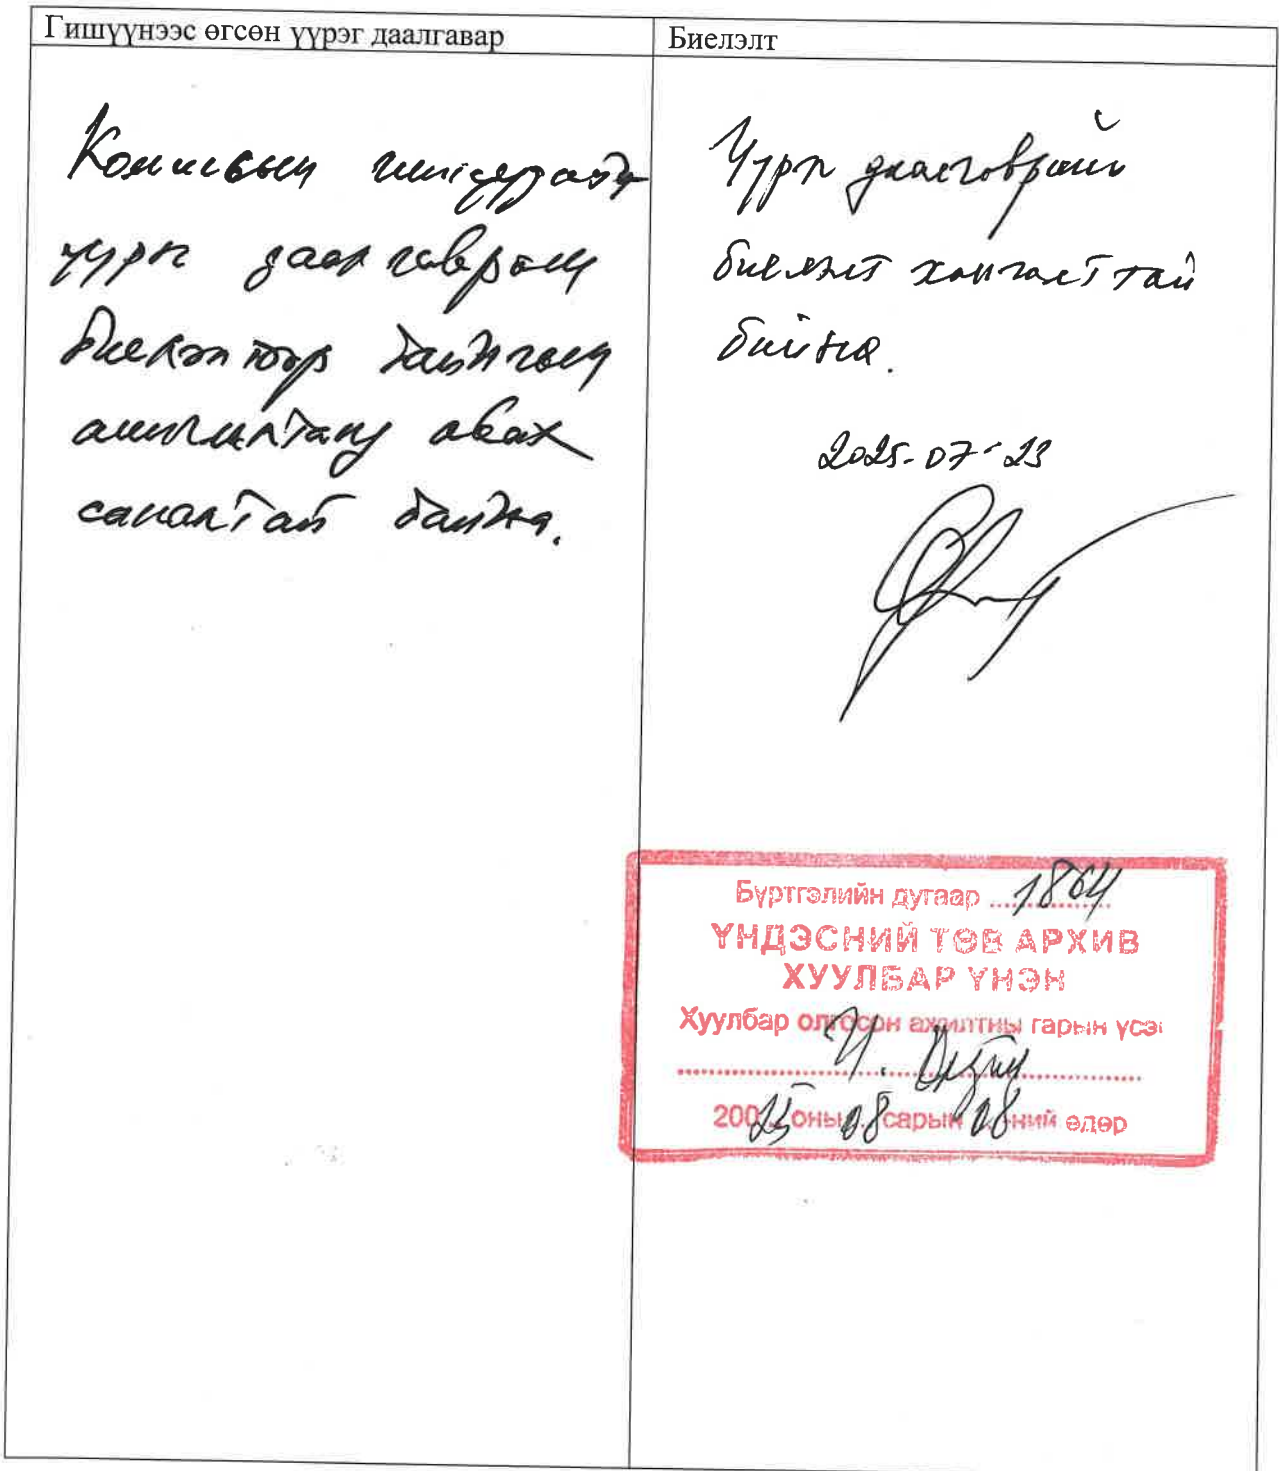 Гишүүнээс өгсөн үүрэг даалгавар
Комиссын гишүүдийн
үүрэг даалгаврын
биелэлтээр байнгын
ажиллагаанд авах
саналтай байна.
Биелэлт
Үүрэг даалгаврын
биелэлт хангалттай
байна.
2025-07-23
Бүртгэлийн дугаар 1864
ҮНДЭСНИЙ ТӨВ АРХИВ
ХУУЛБАР ҮНЭН
Хуулбар олгосон ажилтны гарын үсэг
200 25 оны 08 сарын 08-ний өдөр